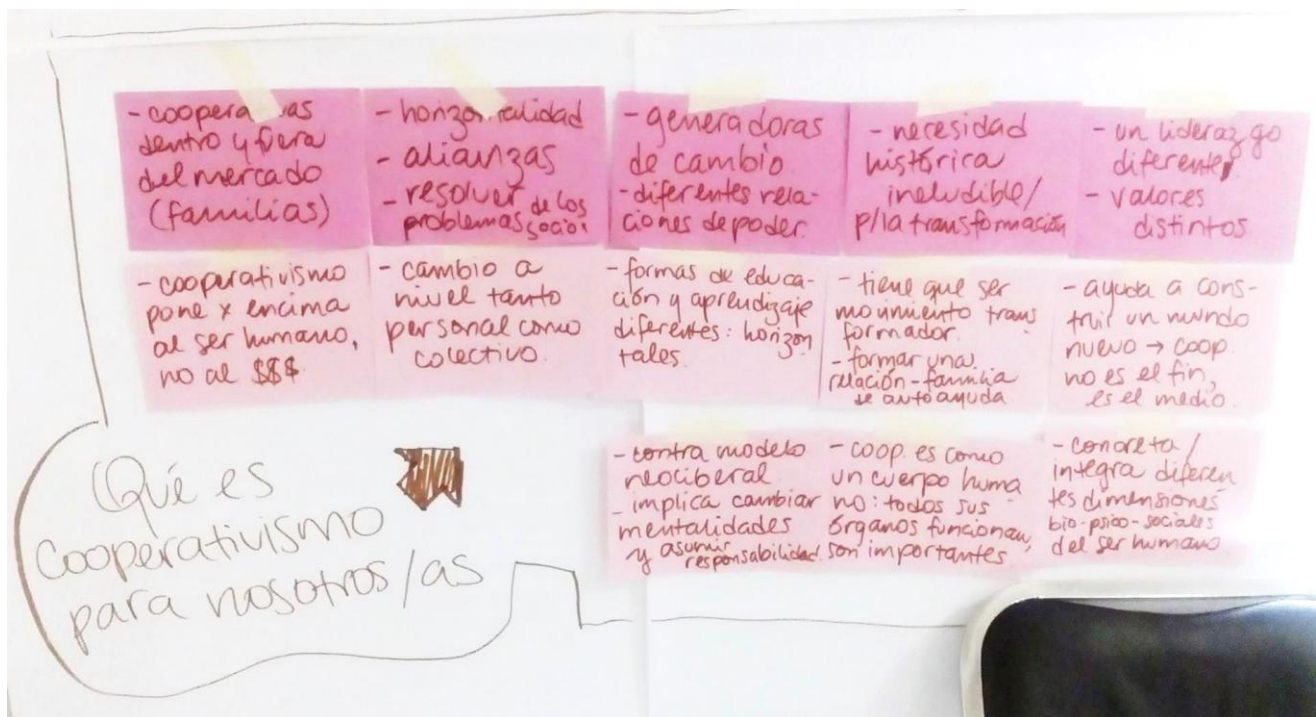 - cooperativas
dentro y fuera
del mercado
(familias)
- horizontalidad
- alianzas
- resolver
problemas de los socios
- generadoras
de cambio
- diferentes rela-
ciones de poder.
- necesidad
histórica
ineludible/
p/la transformación
- un liderazgo
diferente
- valores
distintos
- cooperativismo
pone x encima
al ser humano,
no al $$$
- cambio a
nivel tanto
personal como
colectivo.
- formas de educa-
ción y aprendizaje
diferentes: horizon
tales.
- tiene que ser
movimiento trans
formador.
- formar una
relación-familia
de autoayuda.
- ayuda a cons-
truir un mundo
nuevo → coop.
no es el fin,
es el medio.
- contra modelo
neoliberal.
- implica cambiar
mentalidades
y asumir
responsabilidad.
- coop. es como
un cuerpo huma
no: todos sus
órganos funcionan,
son importantes.
- concreta/
integra diferen
tes dimensiones
bio-psico-sociales
del ser humano
Qué es
Cooperativismo
para nosotros/as